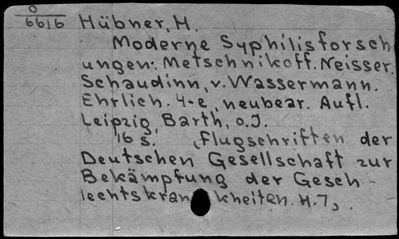 O
6616
Hübner, H.
Moderne Syphilisforsch
ungen: Metschnikoff. Neisser.
Schaudinn, v. Wassermann.
Ehrlich. 4-e, neubear. Aufl.
Leipzig, Barth, o.J.
16 s. (Flugschriften der
Deutschen Gesellschaft zur
Bekämpfung der Gesch-
lechtskrankheiten. H.7).